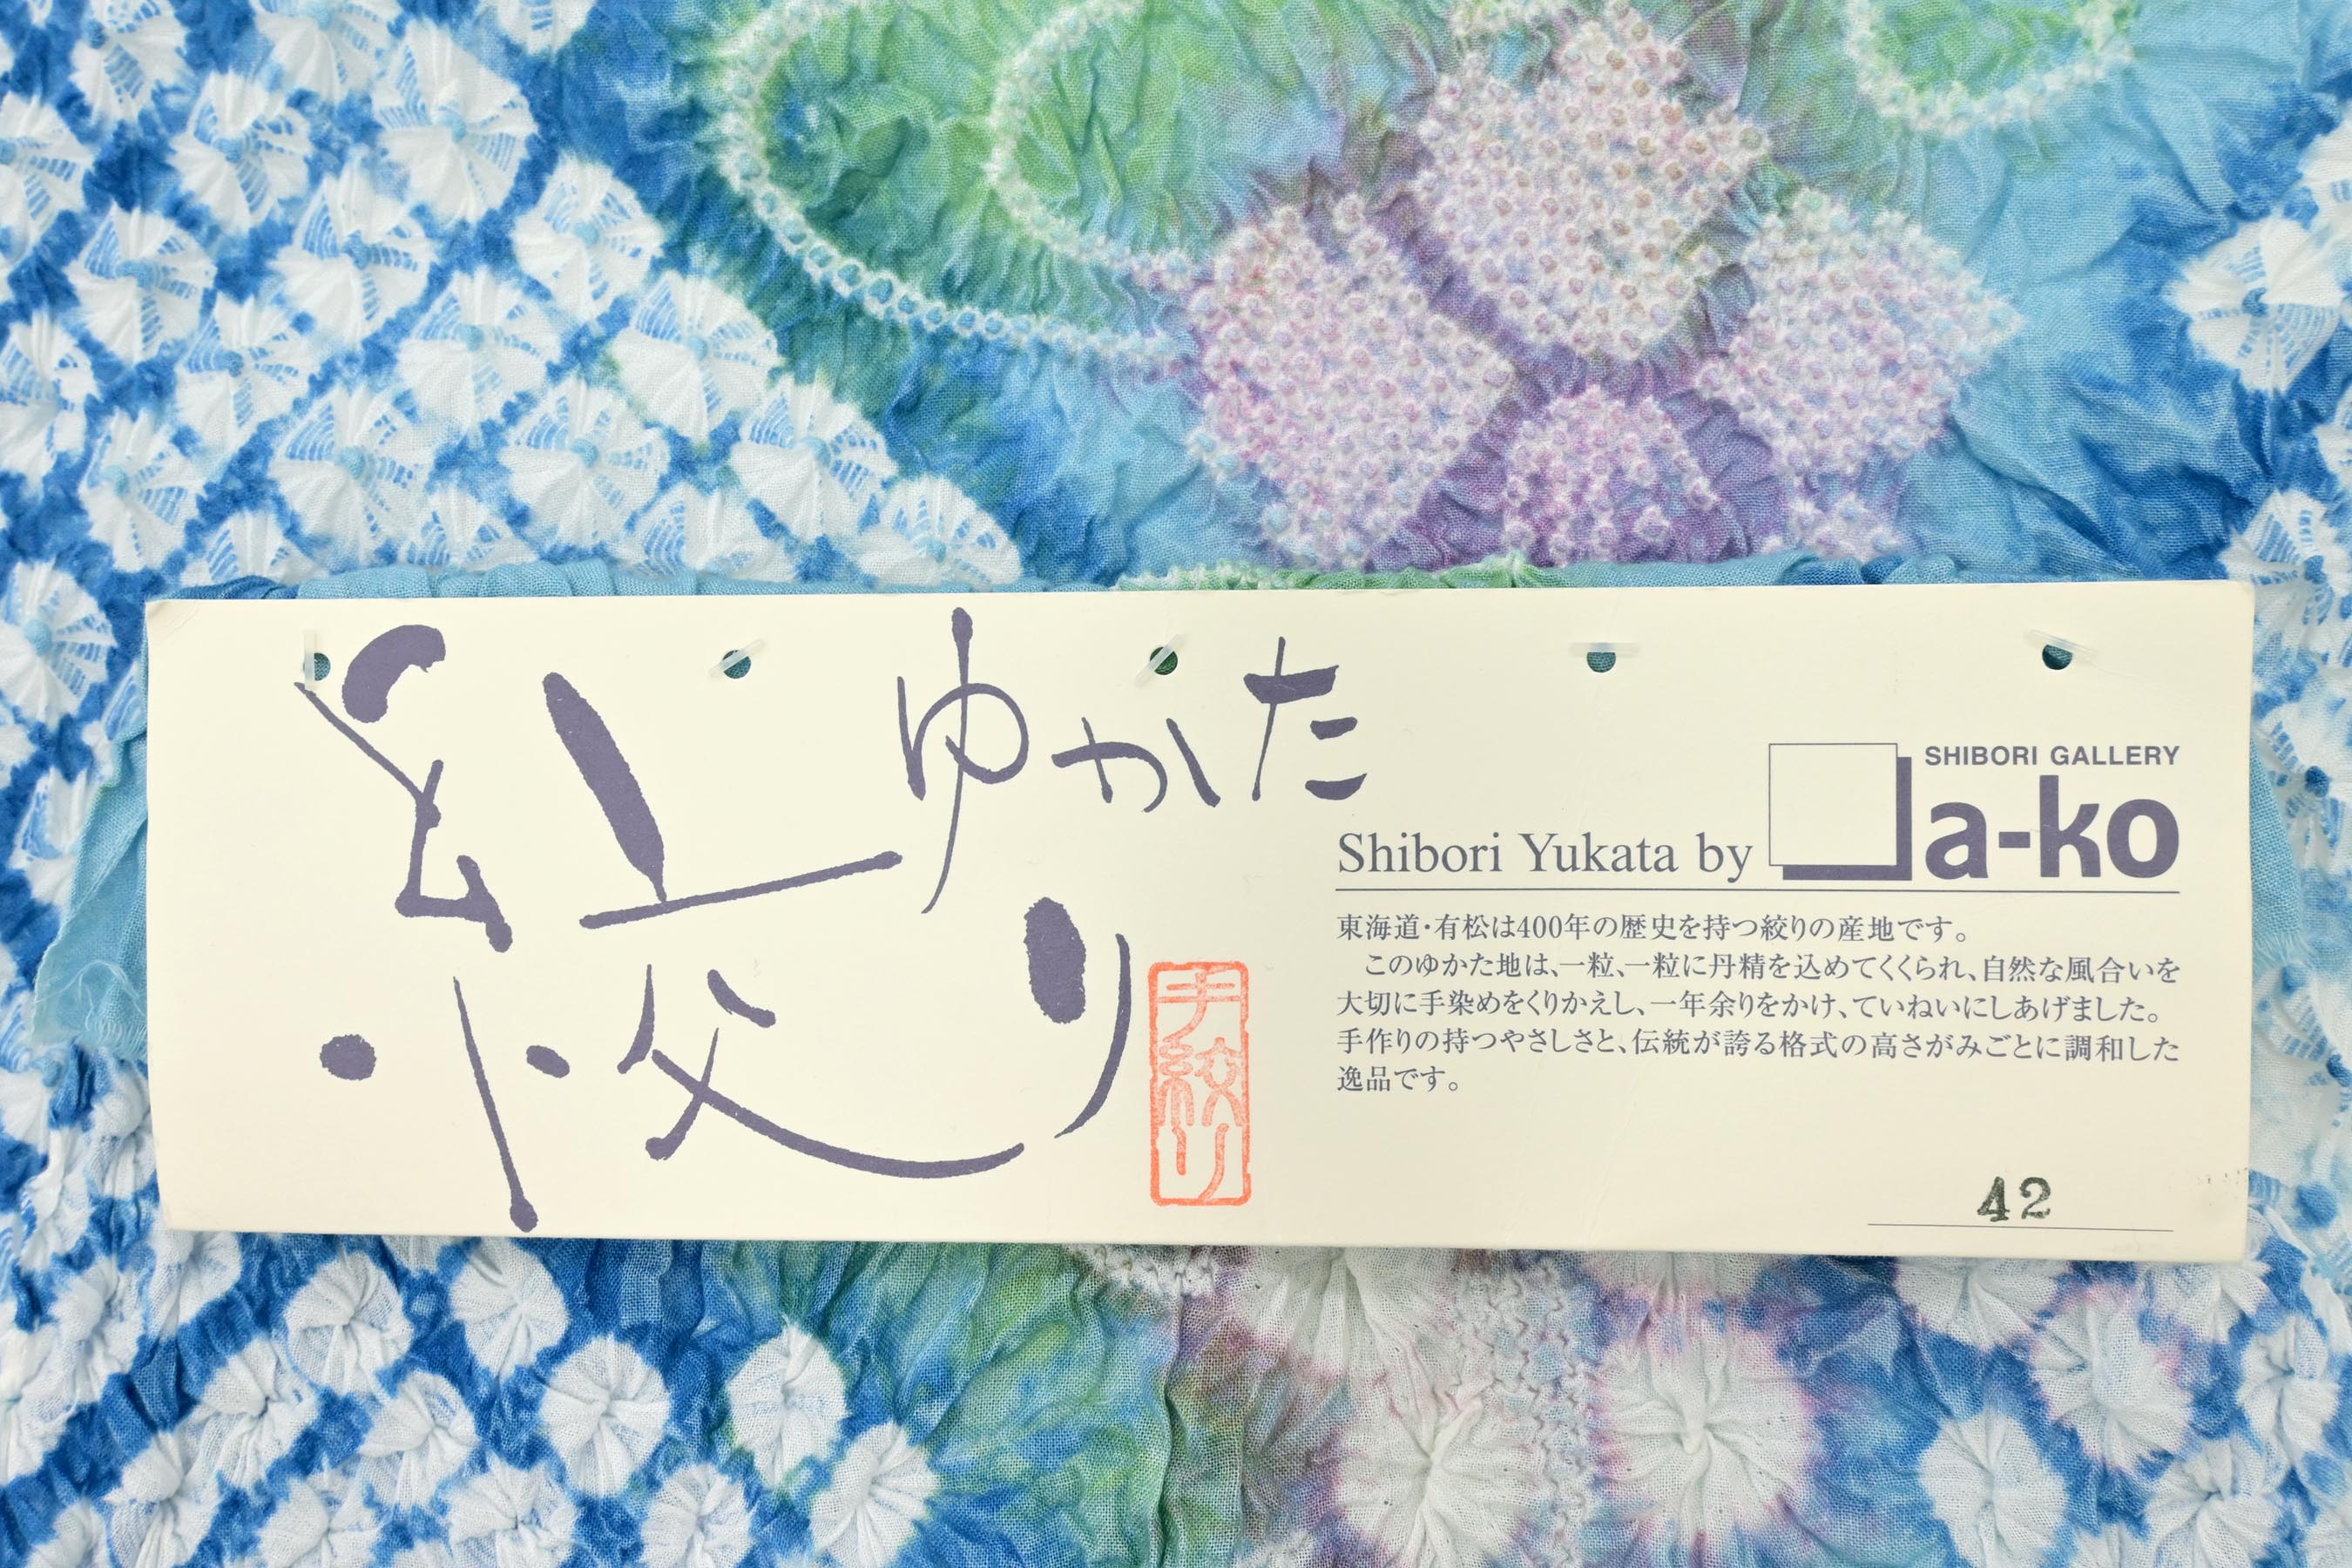 絞り
ゆかた
手絞り
SHIBORI GALLERY
Shibori Yukata by a-ko
東海道・有松は400年の歴史を持つ絞りの産地です。
このゆかた地は、一粒、一粒に丹精を込めてくくられ、自然な風合いを
大切に手染めをくりかえし、一年余りをかけ、ていねいにしあげました。
手作りの持つやさしさと、伝統が誇る格式の高さがみごとに調和した
逸品です。
42